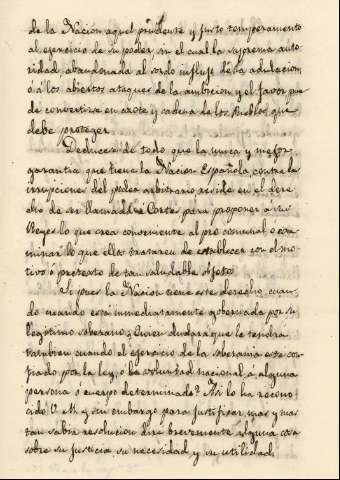 de la Nación aquel prudente y justo temperamento
al ejercicio de su poder sin el cual la suprema auto-
ridad, abandonada al sordo influjo de la adulacion,
ó á los abiertos ataques de la ambicion y el favor pue-
de convertirse en azote y cadena de los Pueblos que
debe proteger.
Deducese de todo que la unica y mejor
garantia que tiene la Nacion Española contra las
irrupciones del poder arbitrario reside en el dere-
cho de ser llamada á Cortes para proponer á sus
Reyes lo que crea conveniente al pro comunal ó exa-
minar lo que ellos trataren de establecer con el mo-
tivo ó pretexto de tan saludable objeto.
Si pues la Nacion tiene este derecho, cuan-
do cuando está inmediatamente gobernada por su
legitimo soberano ¿Quien dudara que le tendra
tambien cuando el ejercicio de la soberania esta con-
fiado por la ley, o la voluntad nacional á alguna
persona ó cuerpo determinado? Asi lo ha recono-
cido V. M. y sin embargo para justificar mas y mas
tan sabia resolucion dire brevemente alguna cosa
sobre su justicia su necesidad y su utilidad.